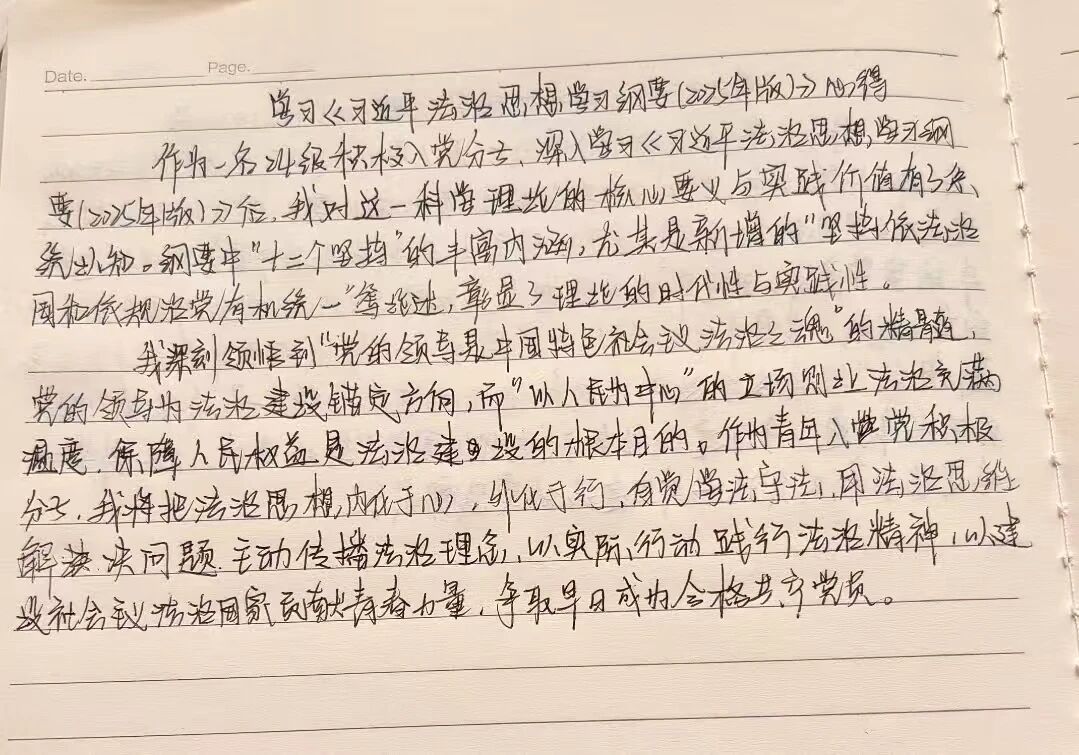 Date. Page.
学习《习近平法治思想学习纲要(2025年版)》心得
作为一名24级积极入党分子，深入学习《习近平法治思想学习纲
要(2025年版)》后，我对这一科学理论的核心要义与实践价值有了系
统认知。纲要中“十二个坚持”的丰富内涵，尤其是新增的“坚持依法治
国和依规治党有机统一”等论述，彰显了理论的时代性与实践性。
我深刻领悟到“党的领导是中国特色社会主义法治之魂”的精髓，
党的领导为法治建设锚定方向，而“以人民为中心”的立场则让法治充满
温度，保障人民权益是法治建设的根本目的。作为青年入党积极
分子，我将把法治思想内化于心，外化于行，自觉学法守法，用法治思维
解决问题，主动传播法治理念，以实际行动践行法治精神，以建
设社会主义法治国家贡献青春力量，争取早日成为合格共产党员。